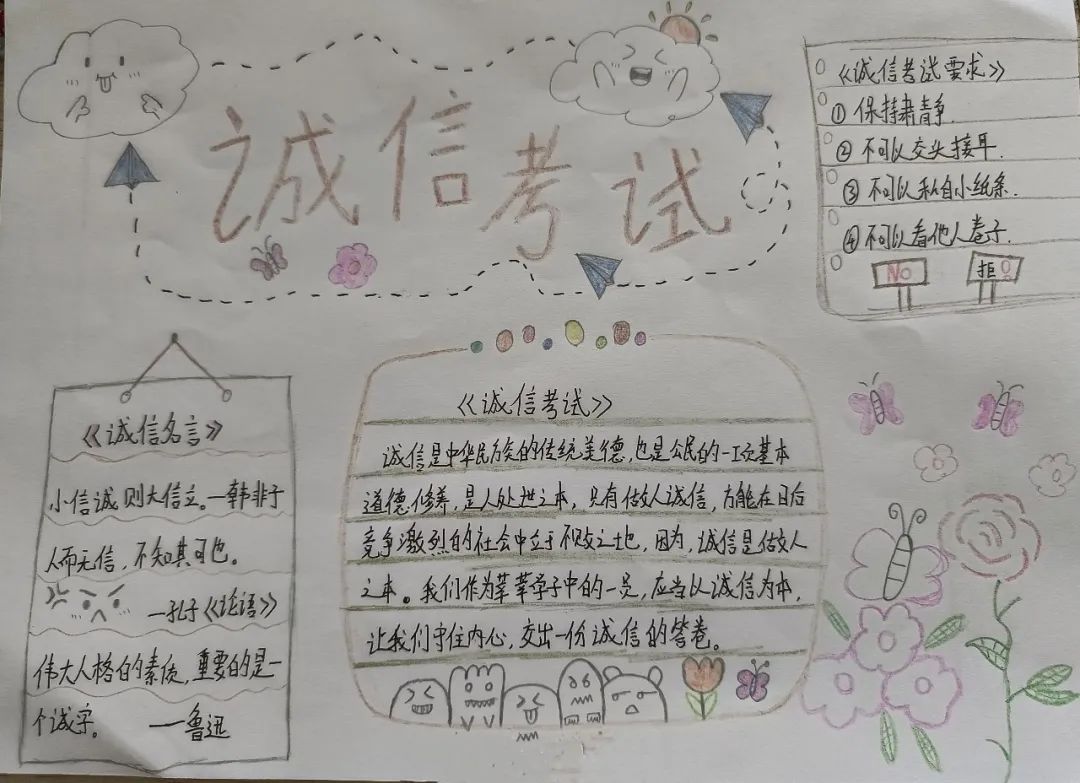 诚信考试
《诚信考试要求》
① 保持肃静.
② 不可以交头接耳.
③ 不可以私自小纸条.
④ 不可以看他人卷子.
NO
拒
《诚信名言》
小信诚则大信立。—韩非子
人而无信,不知其可也。
—孔子《论语》
伟大人格的素质,重要的是一
个诚字。 ——鲁迅
《诚信考试》
诚信是中华民族的传统美德,也是公民的一项基本
道德修养,是人处世之本,只有做人诚信,方能在日后
竞争激烈的社会中立于不败之地,因为,诚信是做人
之本。我们作为莘莘学子中的一员,应当以诚信为本,
让我们守住内心,交出一份诚信的答卷。